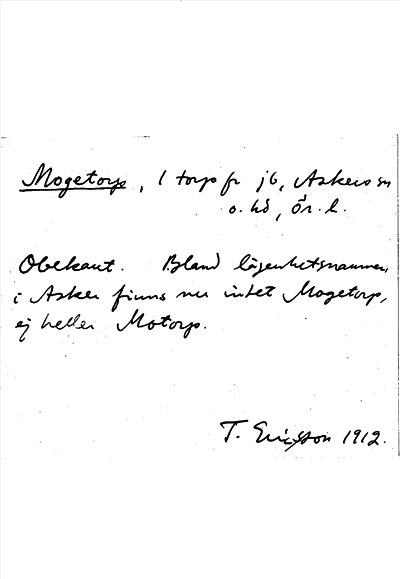 Mogetorp, 1 torp fr jb, Askers sn
o. hd, Ör. l.
Obekant. Bland lägenhetsnamnen
i Asker finns nu intet Mogetorp,
ej heller Motorp.
T. Ericsson 1912.